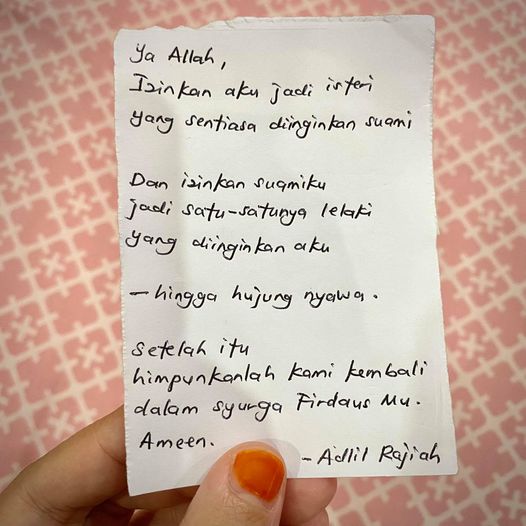 Ya Allah,
Izinkan aku jadi isteri
yang sentiasa diinginkan suami
Dan izinkan suamiku
jadi satu-satunya lelaki
yang diinginkan aku
— hingga hujung nyawa.
Setelah itu
himpunkanlah kami kembali
dalam syurga Firdaus Mu.
Ameen.
- Adlil Rajiah